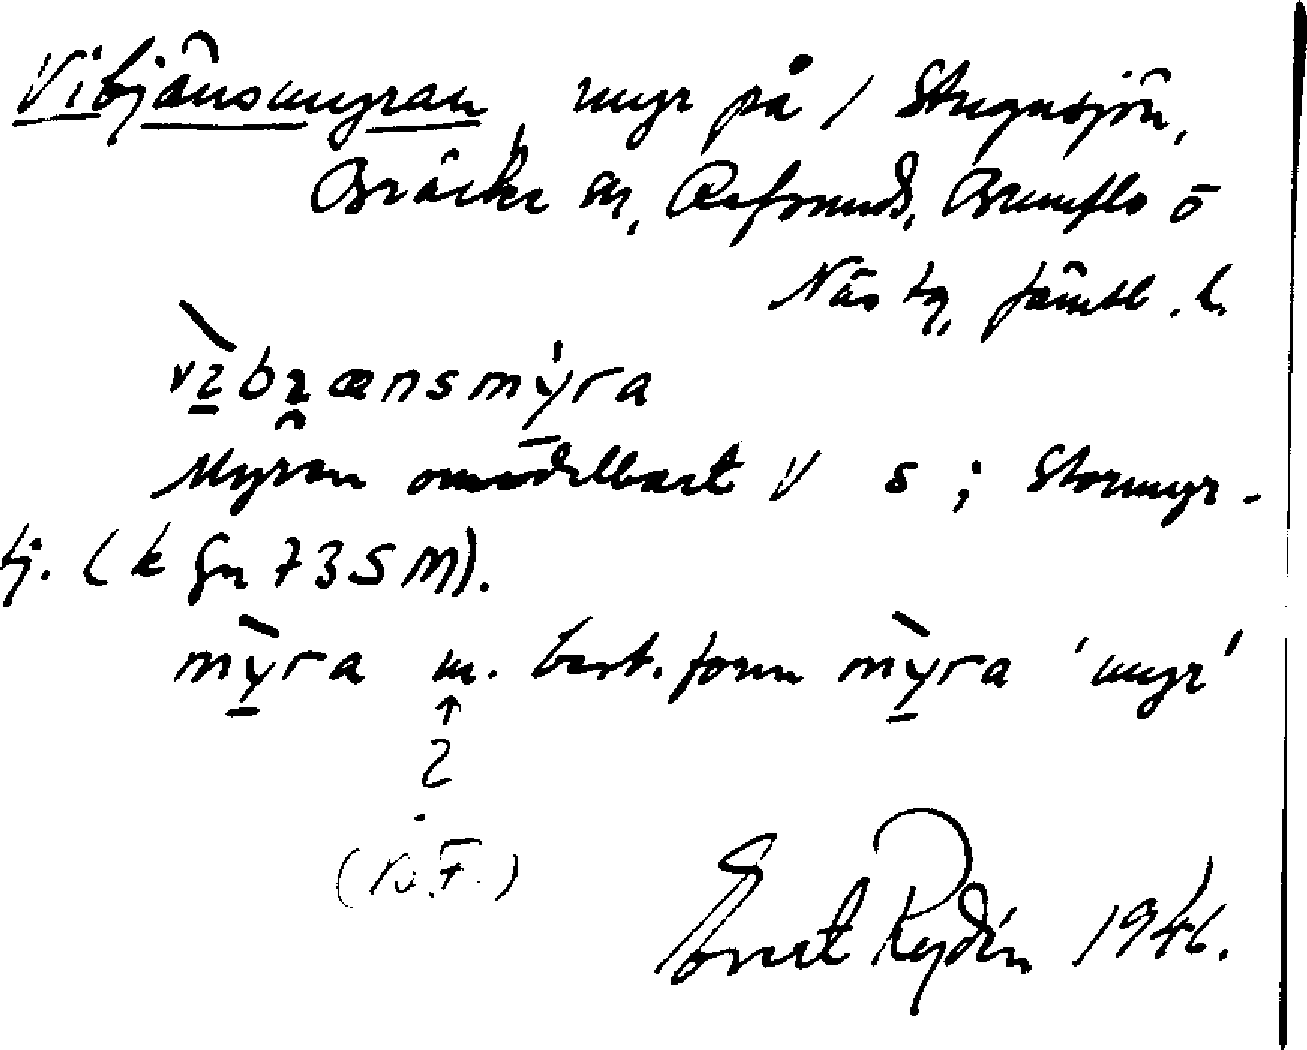 Vibjänsmyran, myr på / Stugusjön,
Bräcke sn, Refsunds, Brunflo o
Näs tg, Jämtl. l.
vibjænsmyra
Myren omedelbart V s ; Stormyr-
tj. (k Gn 735 M).
mỳra m. best. form mỳra 'myr'
↑
?
Ernst Rydén 1946.